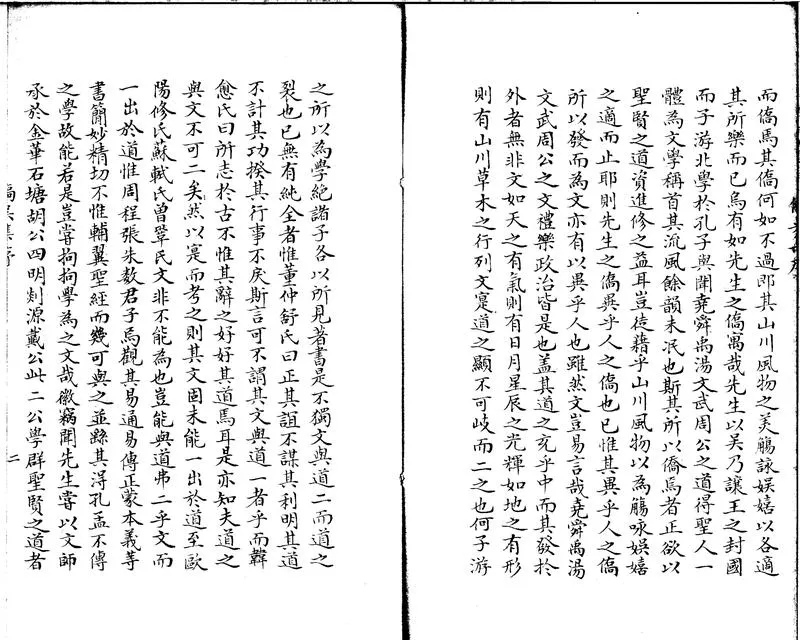 而僑焉其僑何如不過即其山川風物之美觴詠娱嬉以各適
其所樂而已烏有如先生之僑寓哉先生以吴乃讓王之封國
而子游北學於孔子與聞堯舜禹湯文武周公之道得聖人一
體為文學稱首其流風餘韻未泯也斯其所以僑焉者正欲以
聖賢之道資進修之益耳豈徒藉乎山川風物以為觴咏娱嬉
之適而止耶則先生之僑異乎人之僑也已惟其異乎人之僑
所以發而為文亦有以異乎人也雖然文豈易言哉堯舜禹湯
文武周公之文禮樂政治皆是也盖其道之充乎中而其發於
外者無非文如天之有氣則有日月星辰之光輝如地之有形
則有山川草木之行列文寔道之顯不可歧而二之也何子游
之所以為學絶諸子各以所見著書是不獨文與道二而道之
裂也已無有純全者惟董仲舒氏曰正其誼不謀其利明其道
不計其功揆其行事不戾斯言可不謂其文與道一者乎而韓
愈氏曰所志於古不惟其辭之好好其道焉耳是亦知夫道之
與文不可二矣然以寔而考之則其文固未能一出於道至歐
陽修氏蘇軾氏曾鞏氏文非不能為也豈能與道弗二乎文而
一出於道惟周程張朱数君子焉觀其易通易傳正蒙本義等
書簡妙精切不惟輔翼聖經而幾可與之並繇其淂孔孟不傳
之學故能若是豈嘗拘拘學為之文哉徽竊聞先生嘗以文師
承於金華石塘胡公四明剡源戴公此二公學群聖賢之道者
二